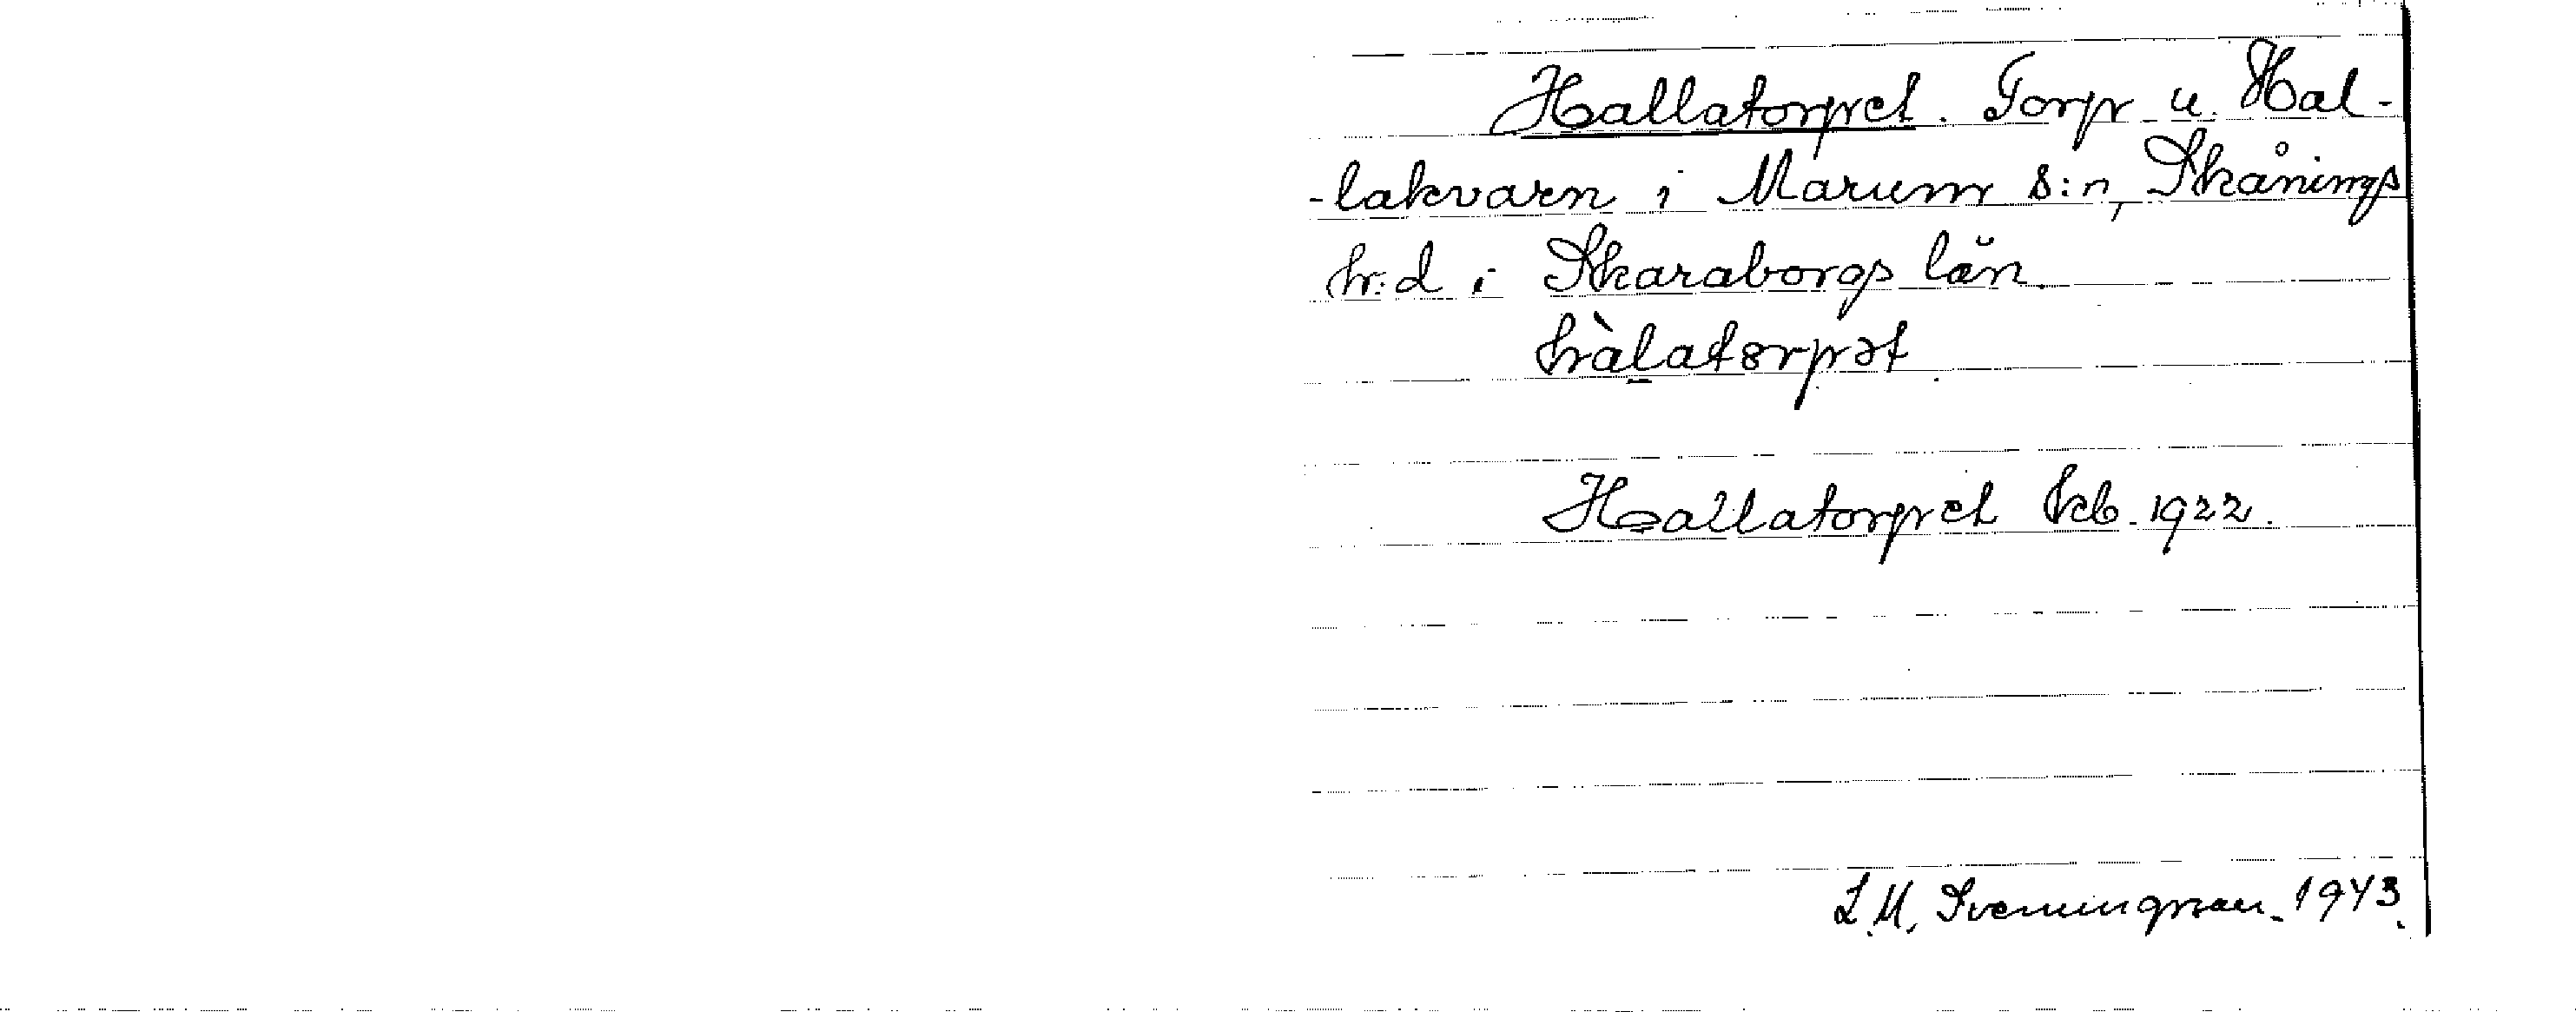 Hallatorpet. Torp u. Hal-
-lakvarn i Marum s:n, Skånings
h:d i Skaraborgs län.
hàlatørpət
Hallatorpet kb. 1922.
L.M. Svenningsson. 1943.